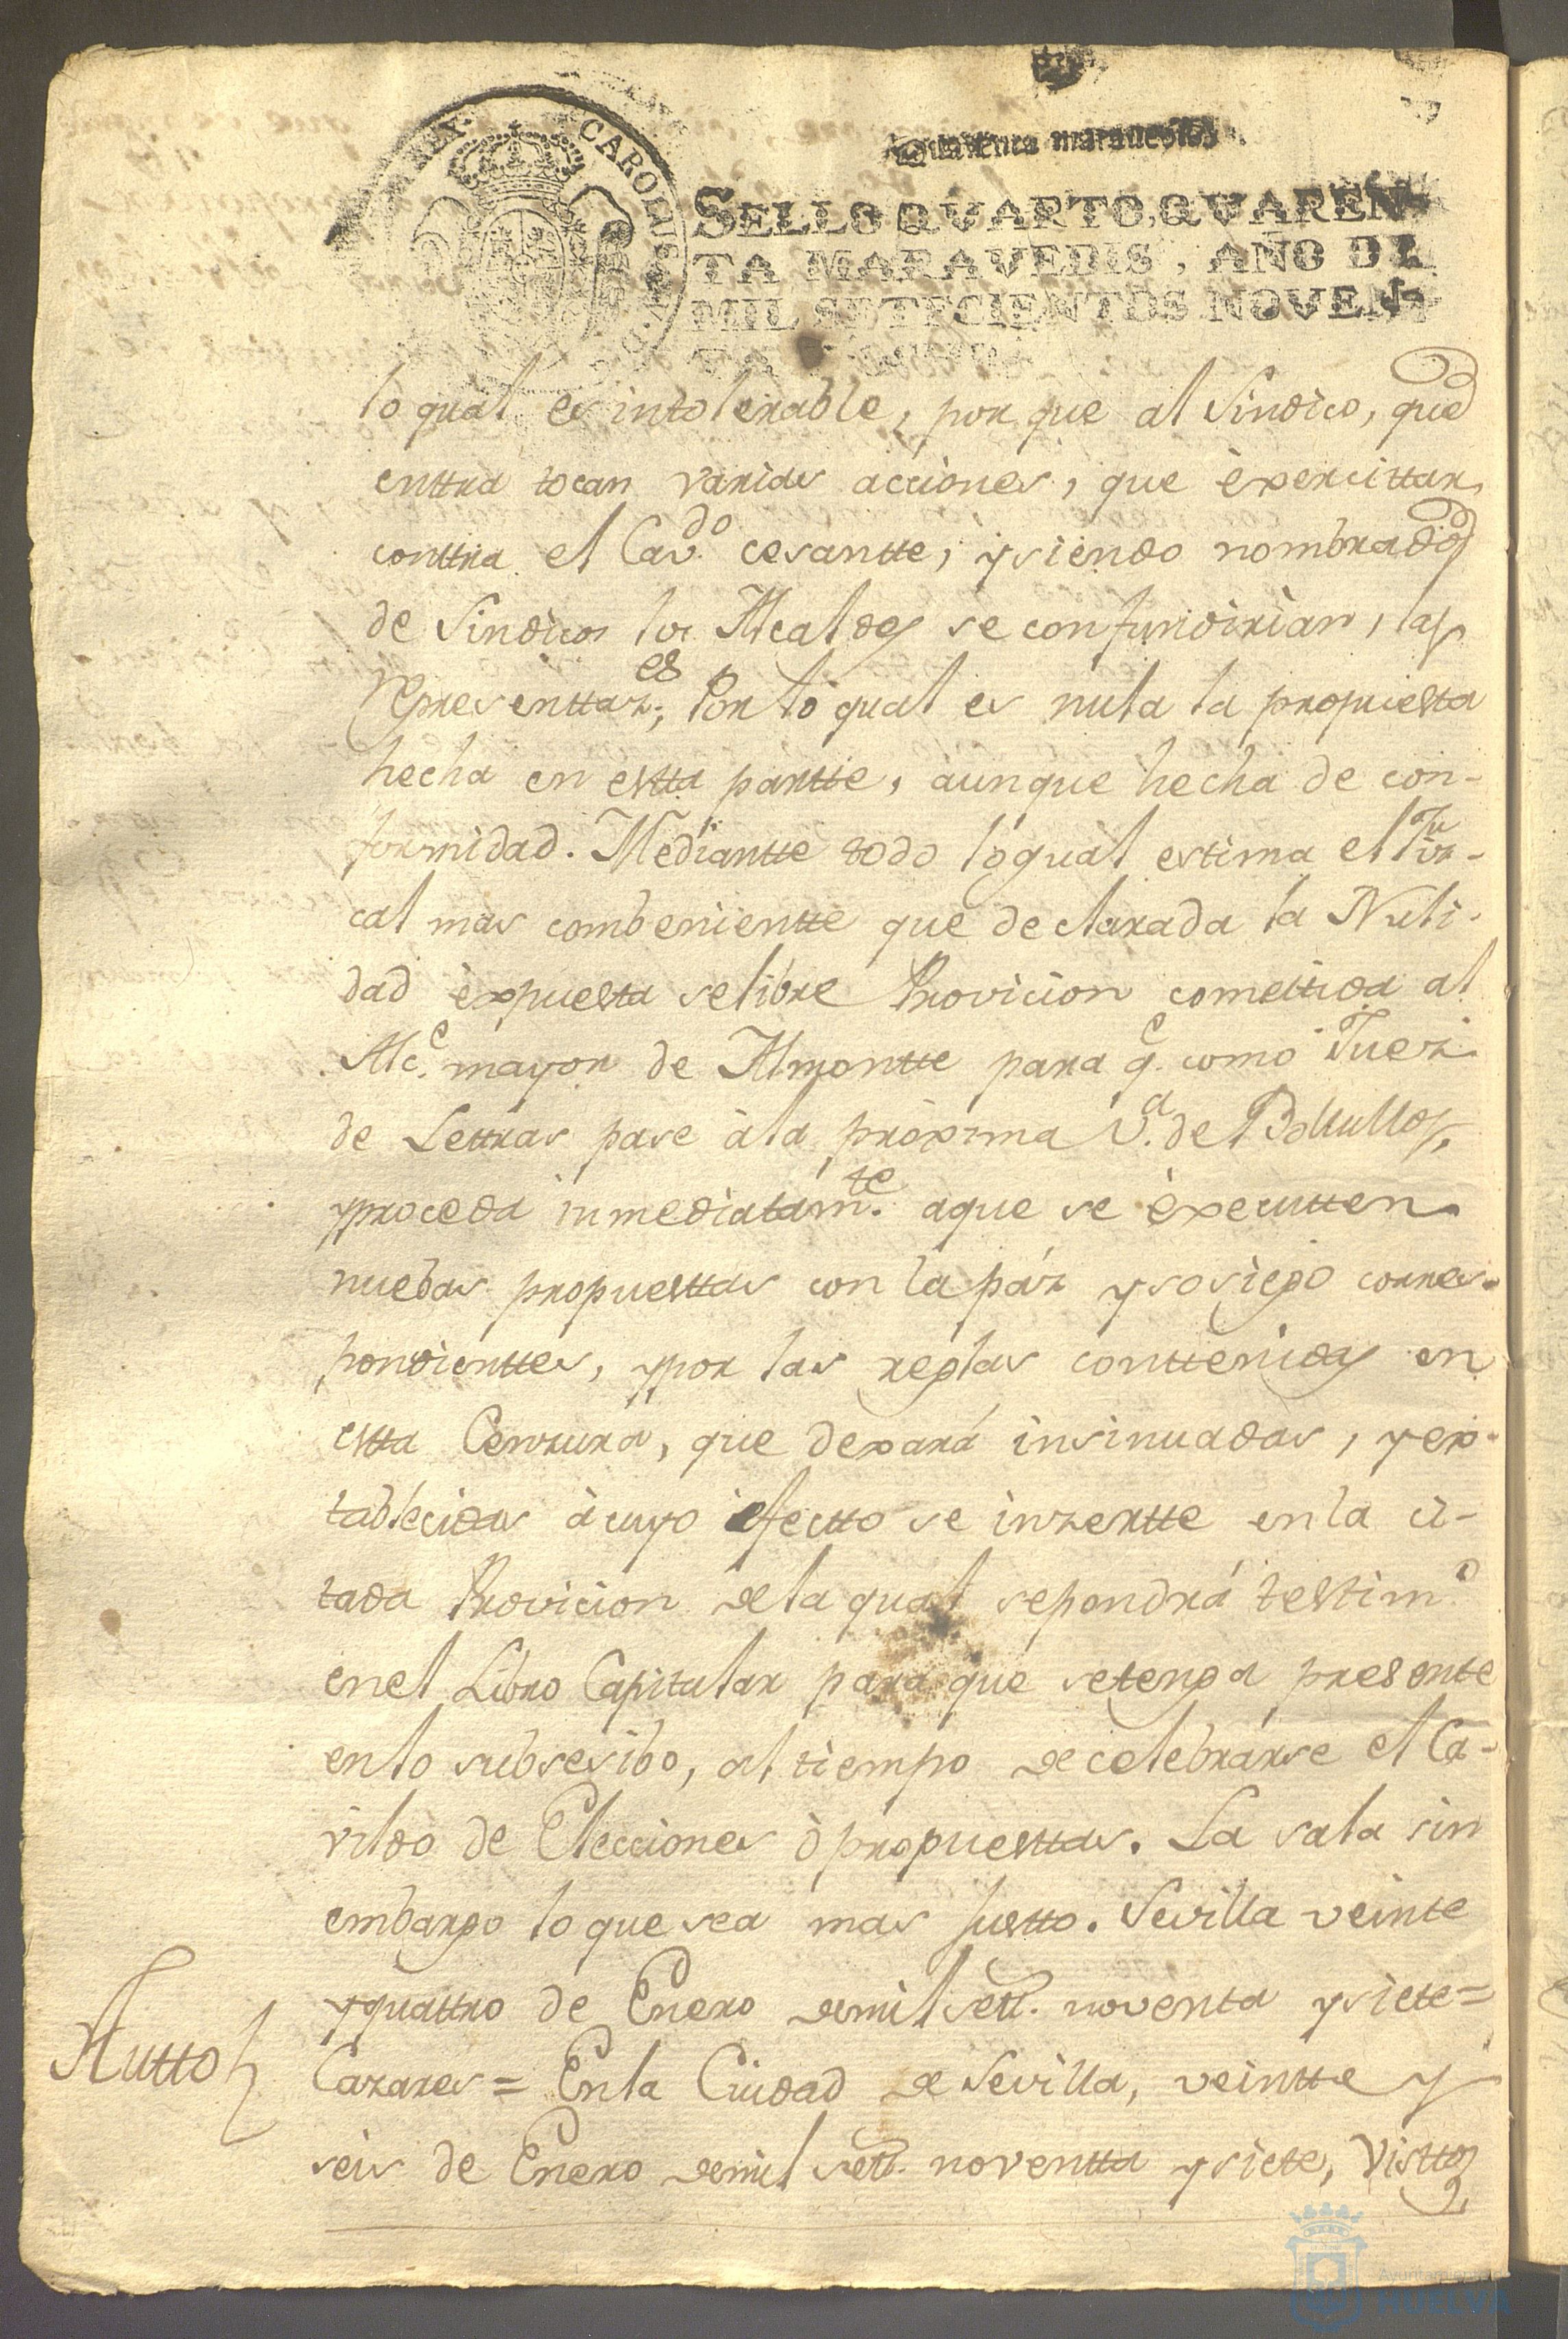 Quarenta maravedis
CAROLUS
REX
SELLO QVARTO, QVAREN-
TA MARAVEDIS, AÑO DE
MIL SETECIENTOS NOVEN-
lo qual es intolerable, por que al Sindico, que
enttra tocan varias acciones, que èxercittar
conttra el Cav.do cesantte; y siendo nombrados
de Sindicos los Alcaldes se confundirian, las
representtaz.es; Por lo qual es nula la propuesta
hecha en estta partte, aunque hecha de con-
formidad. Mediantte todo lo qual estima el Fis-
cal mas combenientte que declarada la Nuli-
dad èxpuesta se libre Provicion comettida al
Alc.e mayor de Almontte para q.e como Juez
de Lettras pase àla pròxima V.a de Bollullos,
y proceda inmediatam.te aque se èxecutten
nuebas propuesttas con la páz y sosiego corres-
pondienttes, y por las reglas conttenidas en
estta Censura, que dexará insinuadas, y ex-
tablecidas àcuyo efectto se inzertte en la ci-
tada Provicion de la qual se pondrá testim.o
en el Libro Capitular para que se tenga presente
en lo subsesibo, al tiempo de celebrarse el Ca-
vildo de Elecciones ò propuesttas. La sala sin
embargo lo que sea mas justto. Sevilla veinte
y quattro de Enero de mil sett. noventa y siete=
Autto
Cazares= En la Ciudad de Sevilla, veintte y
seis de Enero de mil sett. noventta y siete, Visttos
Ayuntamiento de
HUELVA